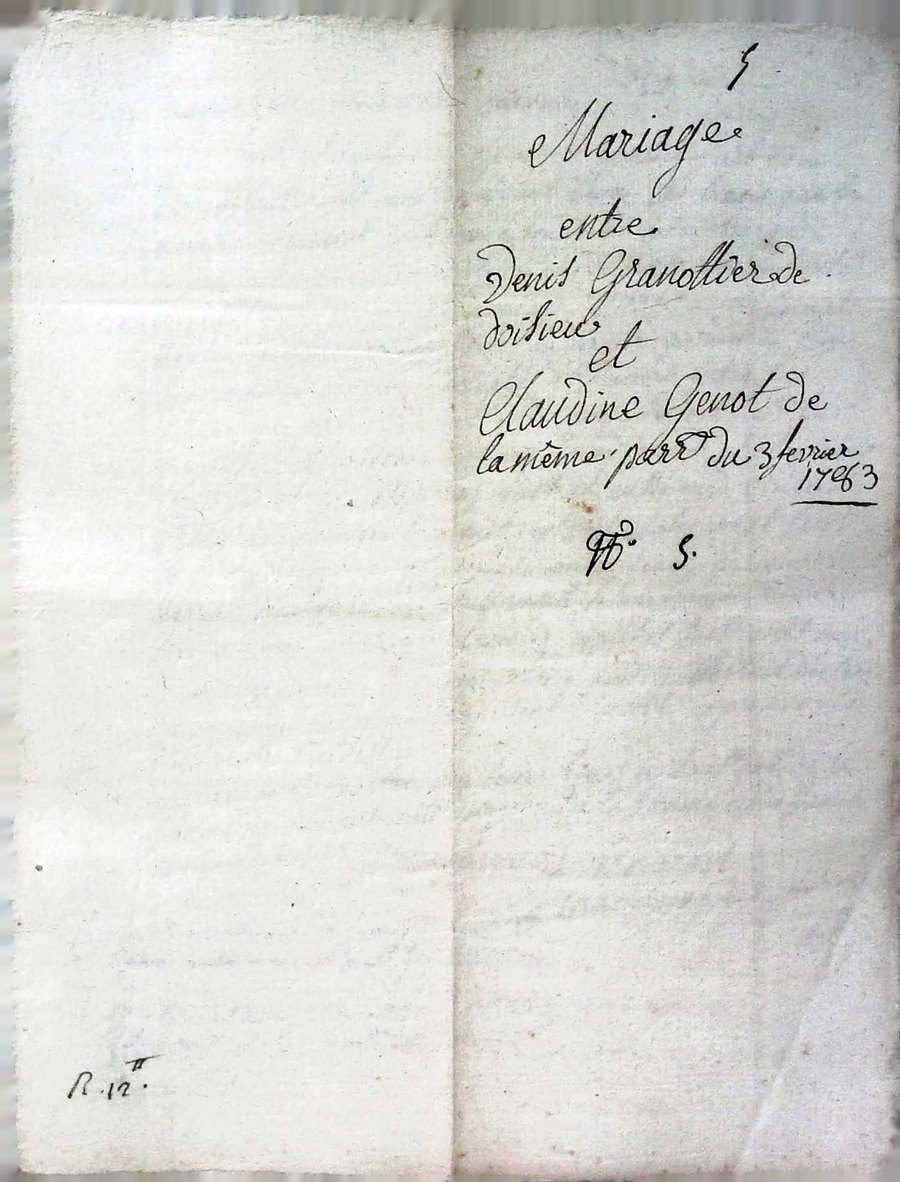 5
Mariage
entre
Denis Granottier de
doisieu
et
Claudine Genot de
la même parr du 3 fevrier
1763
N° 5.
R. 12 ₶.